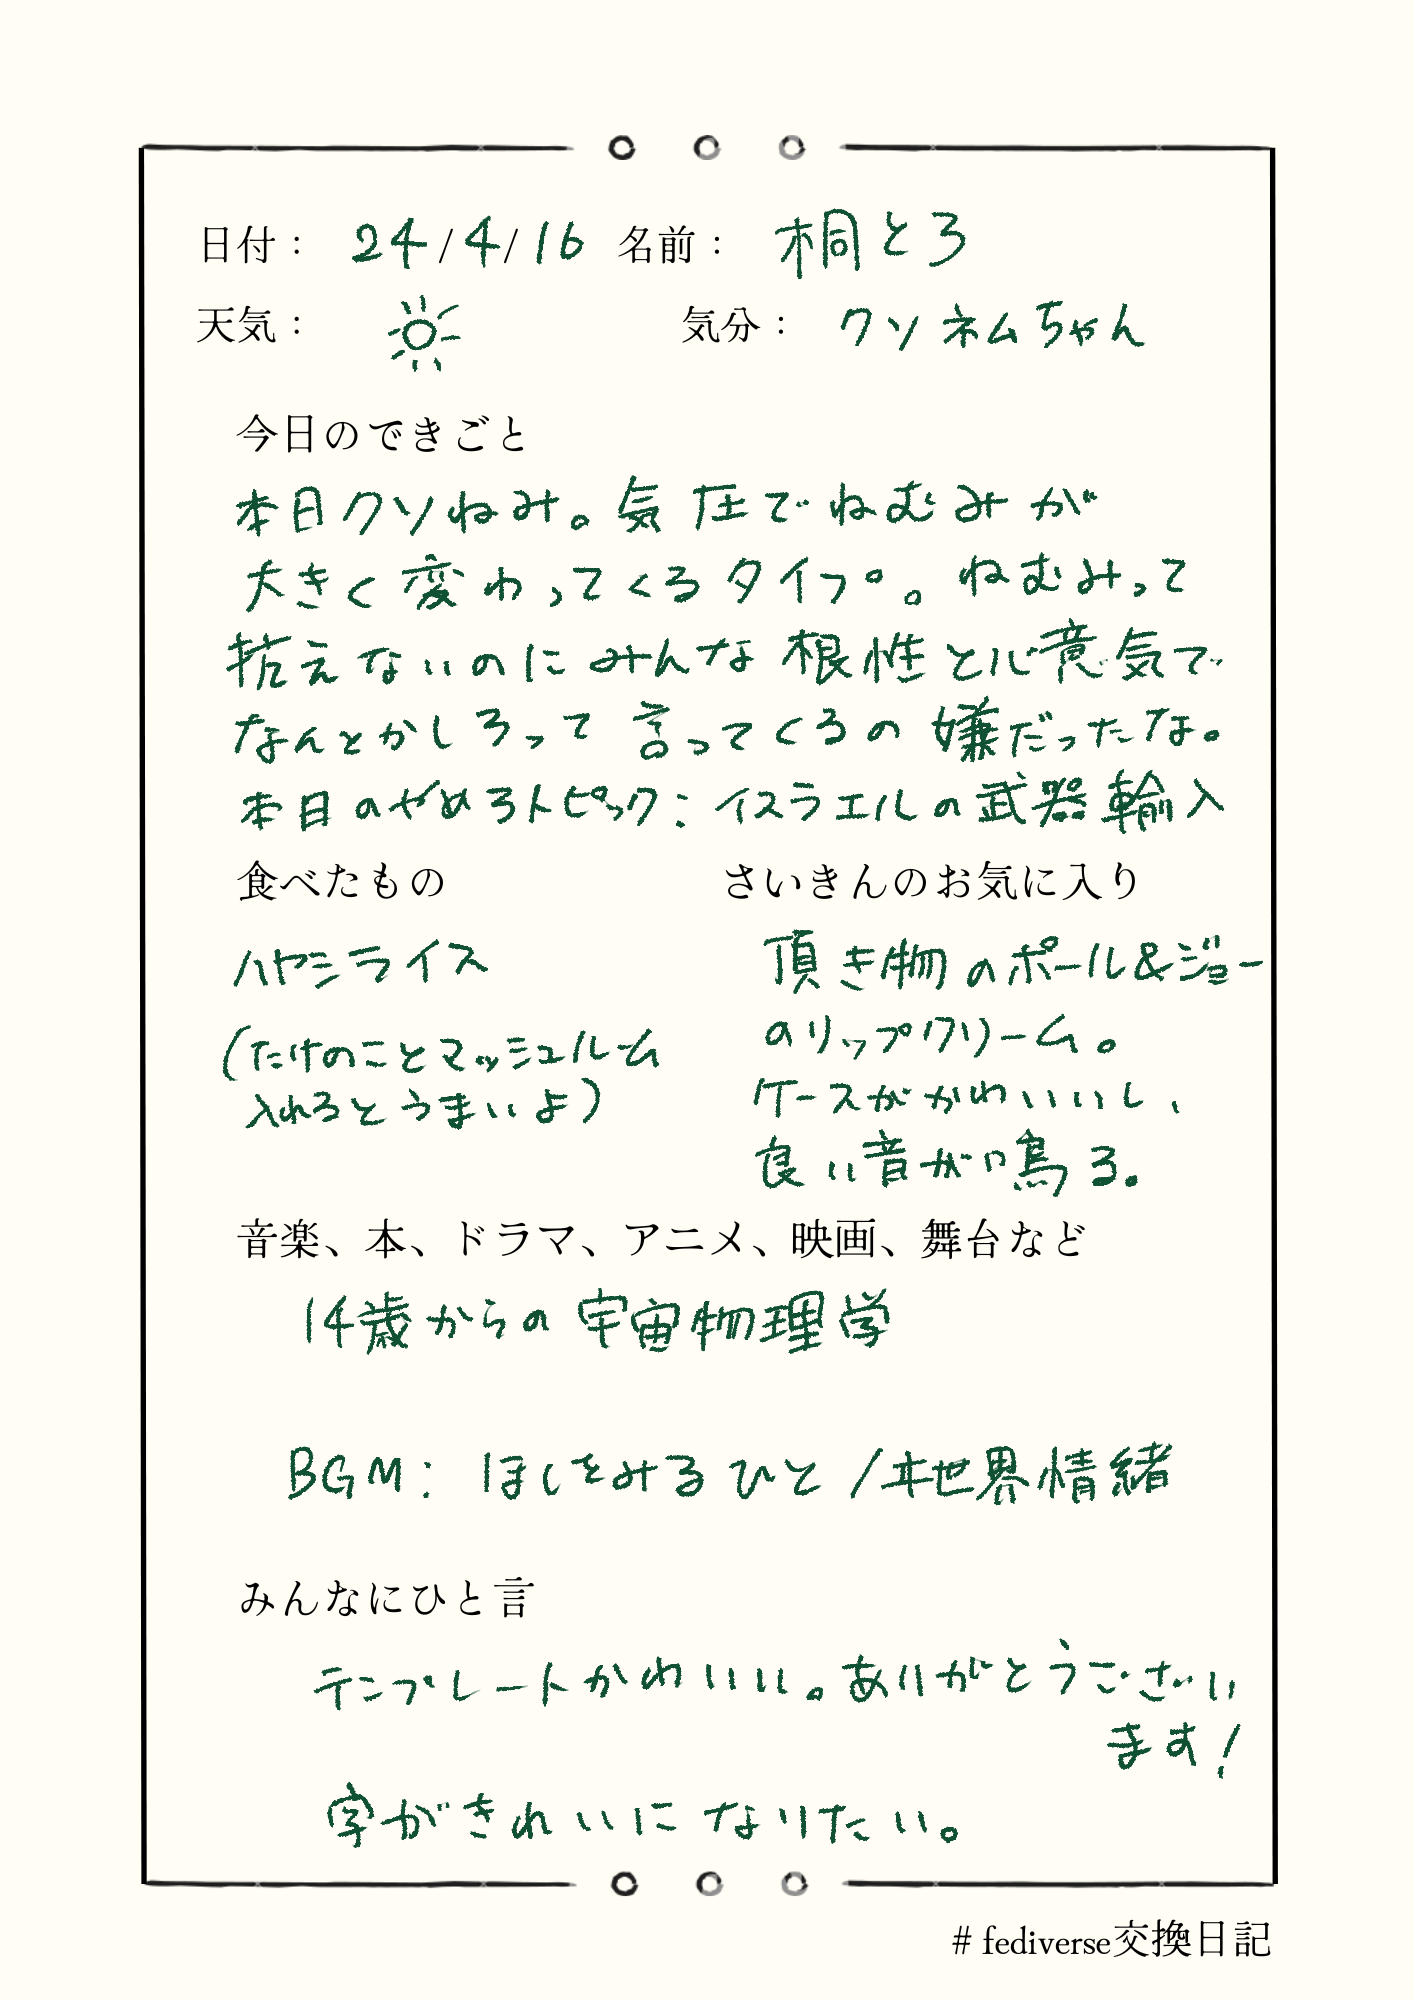 日付： 24/4/16 名前： 桐とろ
天気： 気分： クソネムちゃん
今日のできごと
本日クソねみ。気圧でねむみが
大きく変わってくるタイプ。ねむみって
抗えないのにみんな根性と心意気で
なんとかしろって言ってくるの嫌だったな。
本日のやめろトピック：イスラエルの武器輸入
食べたもの
ハヤシライス
(たけのことマッシュルーム
入れるとうまいよ)
さいきんのお気に入り
頂き物のポール&ジョー
のリップクリーム。
ケースがかわいいし、
良い音が鳴る。
音楽、本、ドラマ、アニメ、映画、舞台など
14歳からの宇宙物理学
BGM：ほしをみるひと/ヰ世界情緒
みんなにひと言
テンプレートかわいい。ありがとうござい
ます!
字がきれいになりたい。
# fediverse交換日記